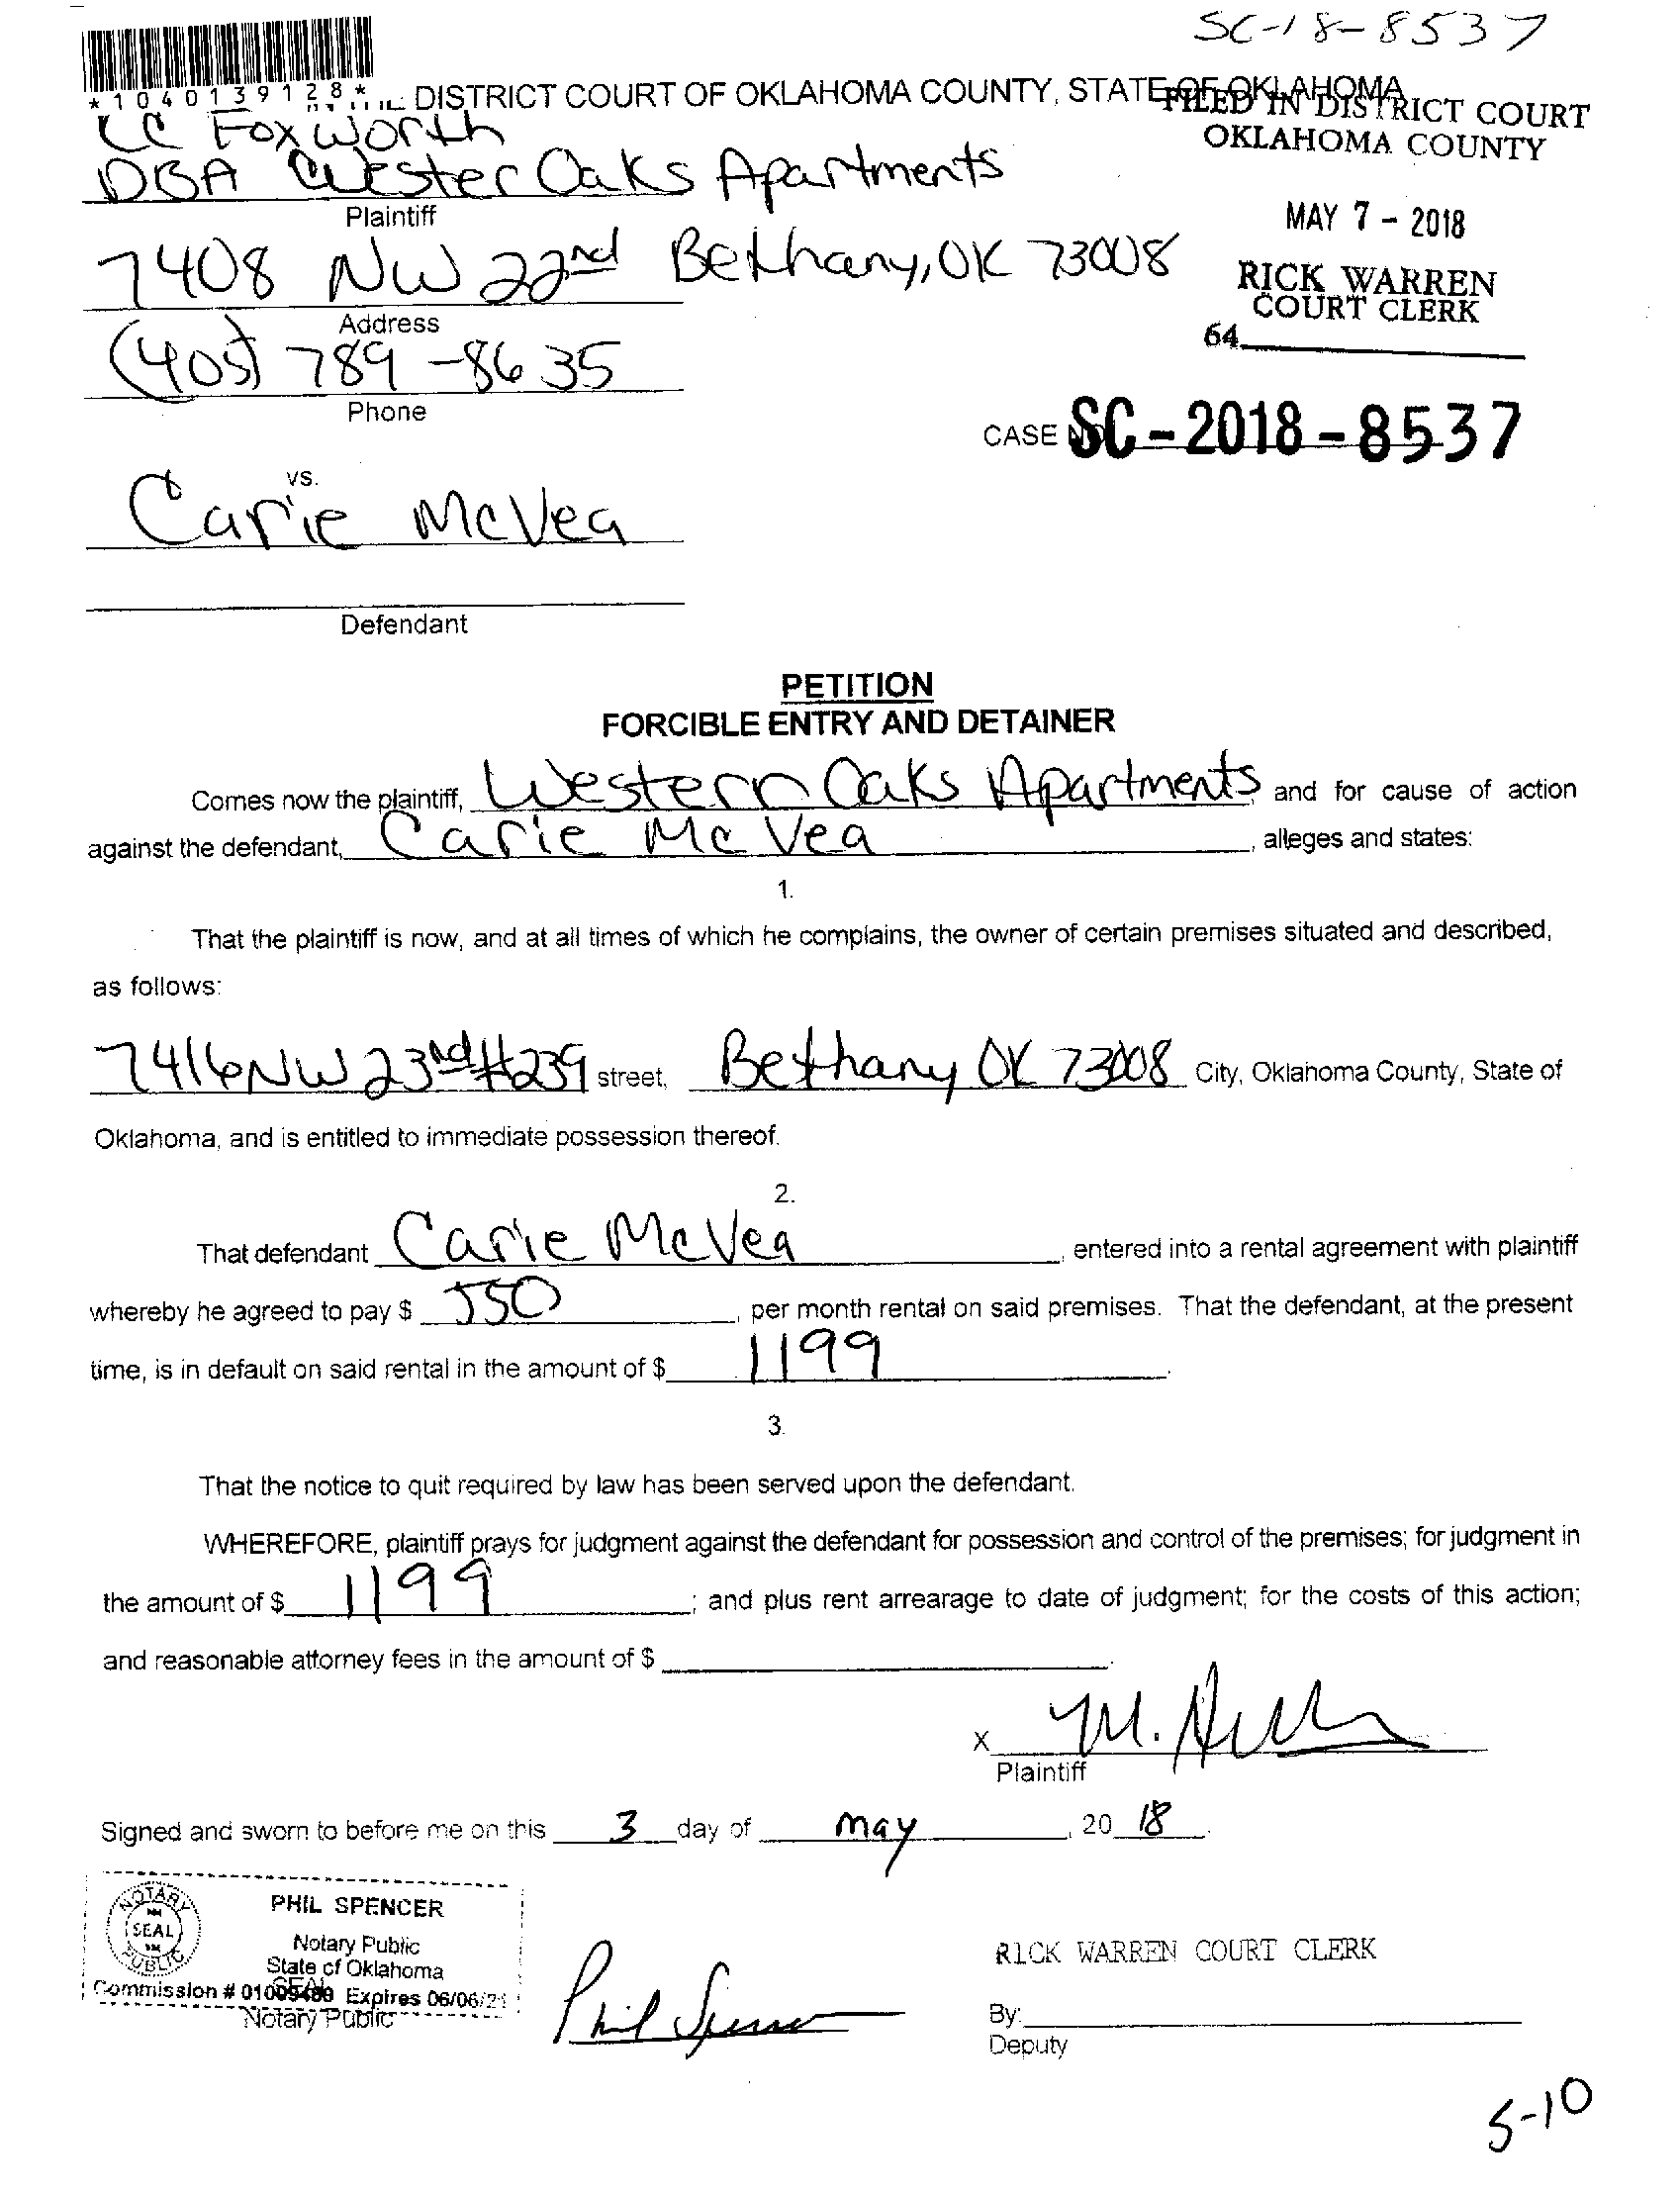 SC-18-8537
*1040139128*
DISTRICT COURT OF OKLAHOMA COUNTY, STATE OF OKLAHOMA
FILED IN DISTRICT COURT
OKLAHOMA COUNTY
Foxworth
DBA Wester Oaks Apartments
Plaintiff
MAY 7 - 2018
7408 NW 22nd Bethany, OK 73008
RICK WARREN
COURT CLERK
Address
64
(405) 789-8635
Phone
CASE NO. SC-2018-8537
vs.
Carie McVea
Defendant
PETITION
FORCIBLE ENTRY AND DETAINER
Comes now the plaintiff, Western Oaks Apartments, and for cause of action
against the defendant, Carie McVea, alleges and states:
1.
That the plaintiff is now, and at all times of which he complains, the owner of certain premises situated and described,
as follows:
7416 NW 23rd #239 street, Bethany OK 73008 City, Oklahoma County, State of
Oklahoma, and is entitled to immediate possession thereof.
2.
That defendant Carie McVea, entered into a rental agreement with plaintiff
whereby he agreed to pay $ 550, per month rental on said premises. That the defendant, at the present
time, is in default on said rental in the amount of $ 1199.
3.
That the notice to quit required by law has been served upon the defendant.
WHEREFORE, plaintiff prays for judgment against the defendant for possession and control of the premises; for judgment in
the amount of $ 1199; and plus rent arrearage to date of judgment; for the costs of this action;
and reasonable attorney fees in the amount of $ .
X M.
Plaintiff
Signed and sworn to before me on this 3 day of may, 20 18.
NOTARY PUBLIC SEAL
PHIL SPENCER
Notary Public
State of Oklahoma
Commission # 01009480 Expires 06/06/21
SEAL
Notary Public
Phil Spencer
RICK WARREN COURT CLERK
By:
Deputy
5-10